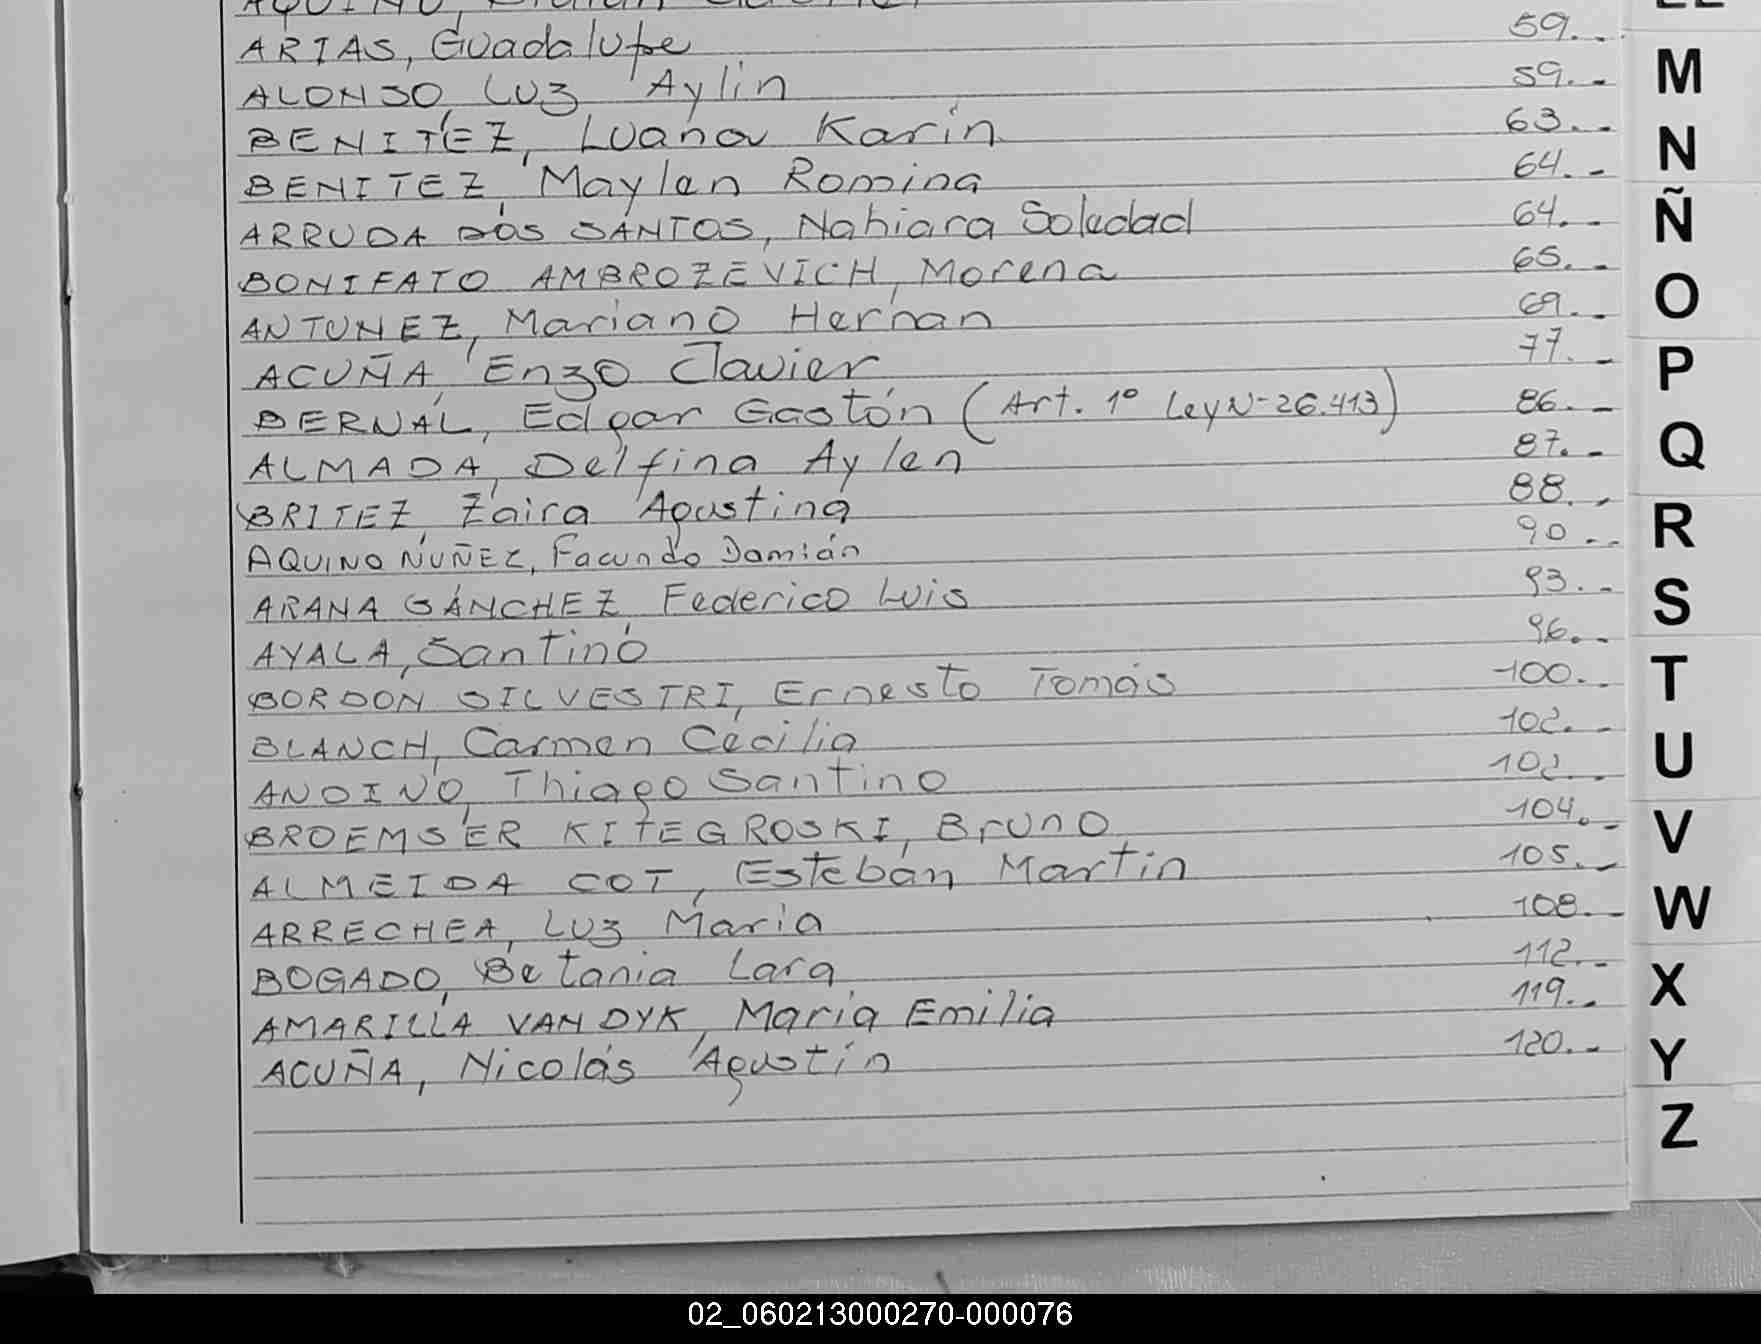 ARIAS, Guadalupe 59.-
ALONSO, Luz Aylin 59.-
BENITEZ, Luana Karin 63.-
BENITEZ, Maylen Romina 64.-
ARRUDA DOS SANTOS, Nahiara Soledad 64.-
BONIFATO AMBROZEVICH, Morena 65.-
ANTUNEZ, Mariano Hernan 69.-
ACUÑA, Enzo Javier 77.-
BERNAL, Edgar Gastón (Art. 1º Ley Nº 26.413) 86.-
ALMADA, Delfina Aylen 87.-
BRITEZ, Zaira Agustina 88.-
AQUINO NUÑEZ, Facundo Damián 90.-
ARANA SÁNCHEZ, Federico Luis 93.-
AYALA, Santino 96.-
BORDON SILVESTRI, Ernesto Tomás 100.-
BLANCH, Carmen Cecilia 102.-
ANDINO, Thiago Santino 102.-
BROEMSER KITEGROSKI, Bruno 104.-
ALMEIDA COT, Esteban Martin 105.-
ARRECHEA, Luz Maria 108.-
BOGADO, Betania Lara 112.-
AMARILLA VAN DYK, Maria Emilia 119.-
ACUÑA, Nicolás Agustín 120.-
M
N
Ñ
O
P
Q
R
S
T
U
V
W
X
Y
Z
02_060213000270-000076